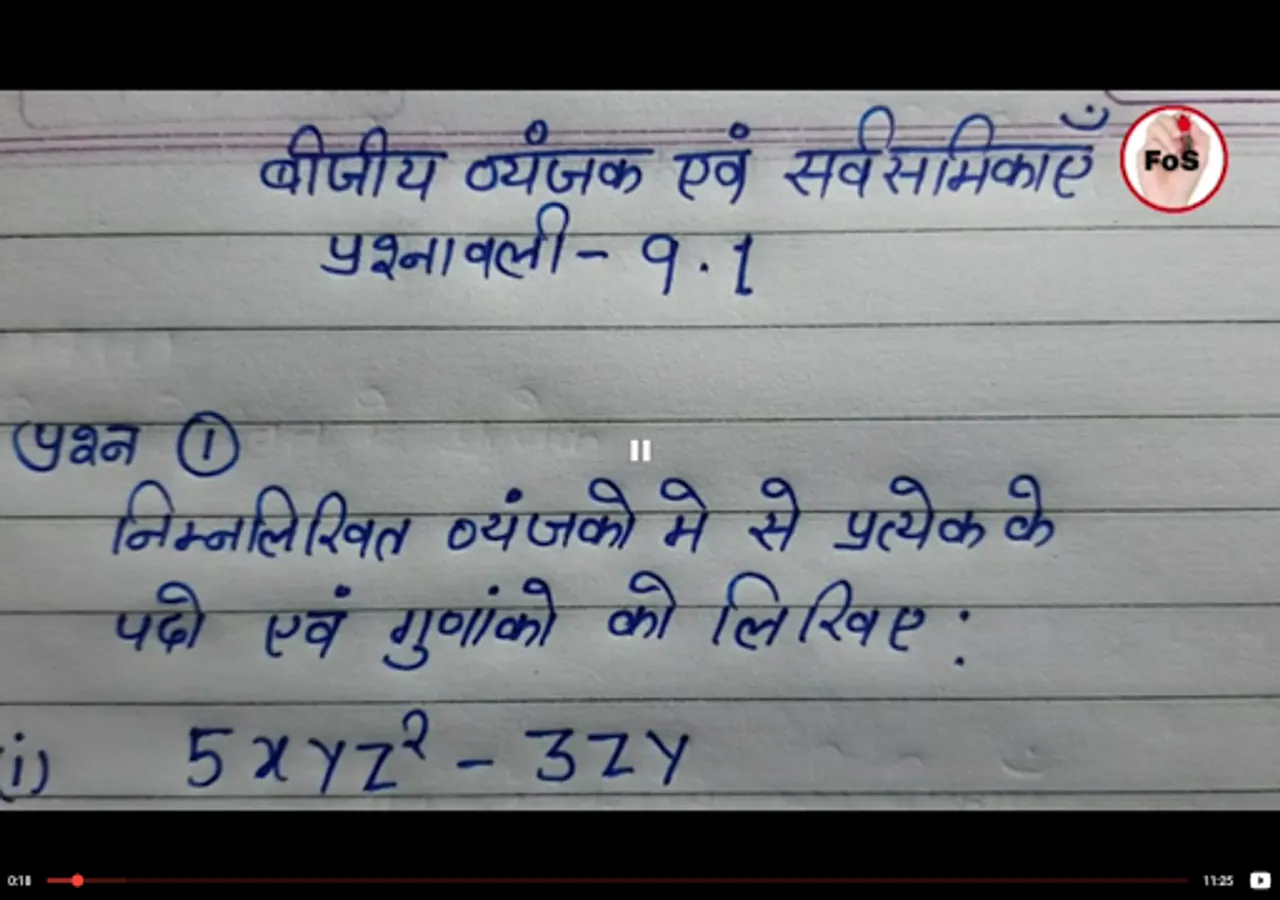 बीजीय व्यंजक एवं सर्वसमिकाएँ
FoS
प्रश्नावली - 9.1
प्रश्न ①
निम्नलिखित व्यंजको मे से प्रत्येक के
पदो एवं गुणांको को लिखिए :
(i) 5xyz² - 3zy
0:18
11:25